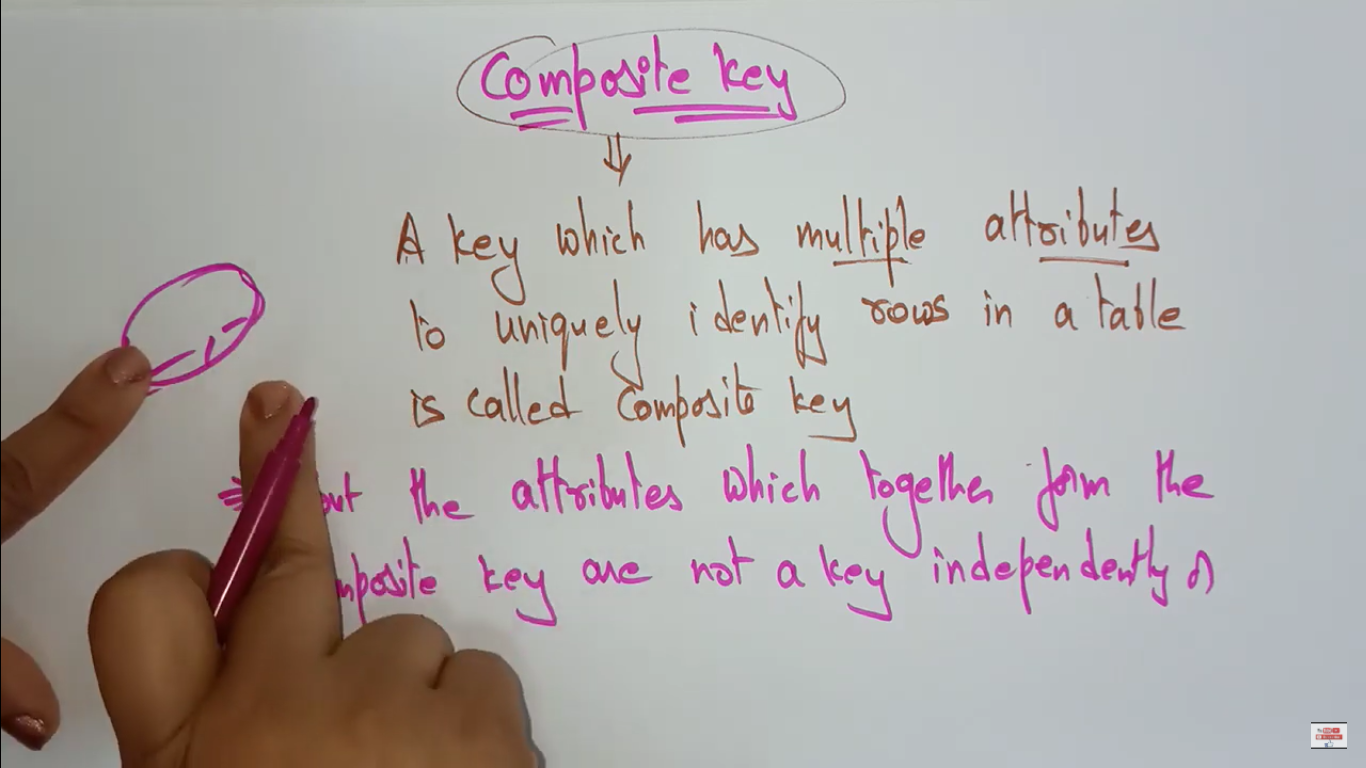 Composite key
A key which has multiple attributes
to uniquely identify rows in a table
is called Composite key
but the attributes which together form the
composite key are not a key independently